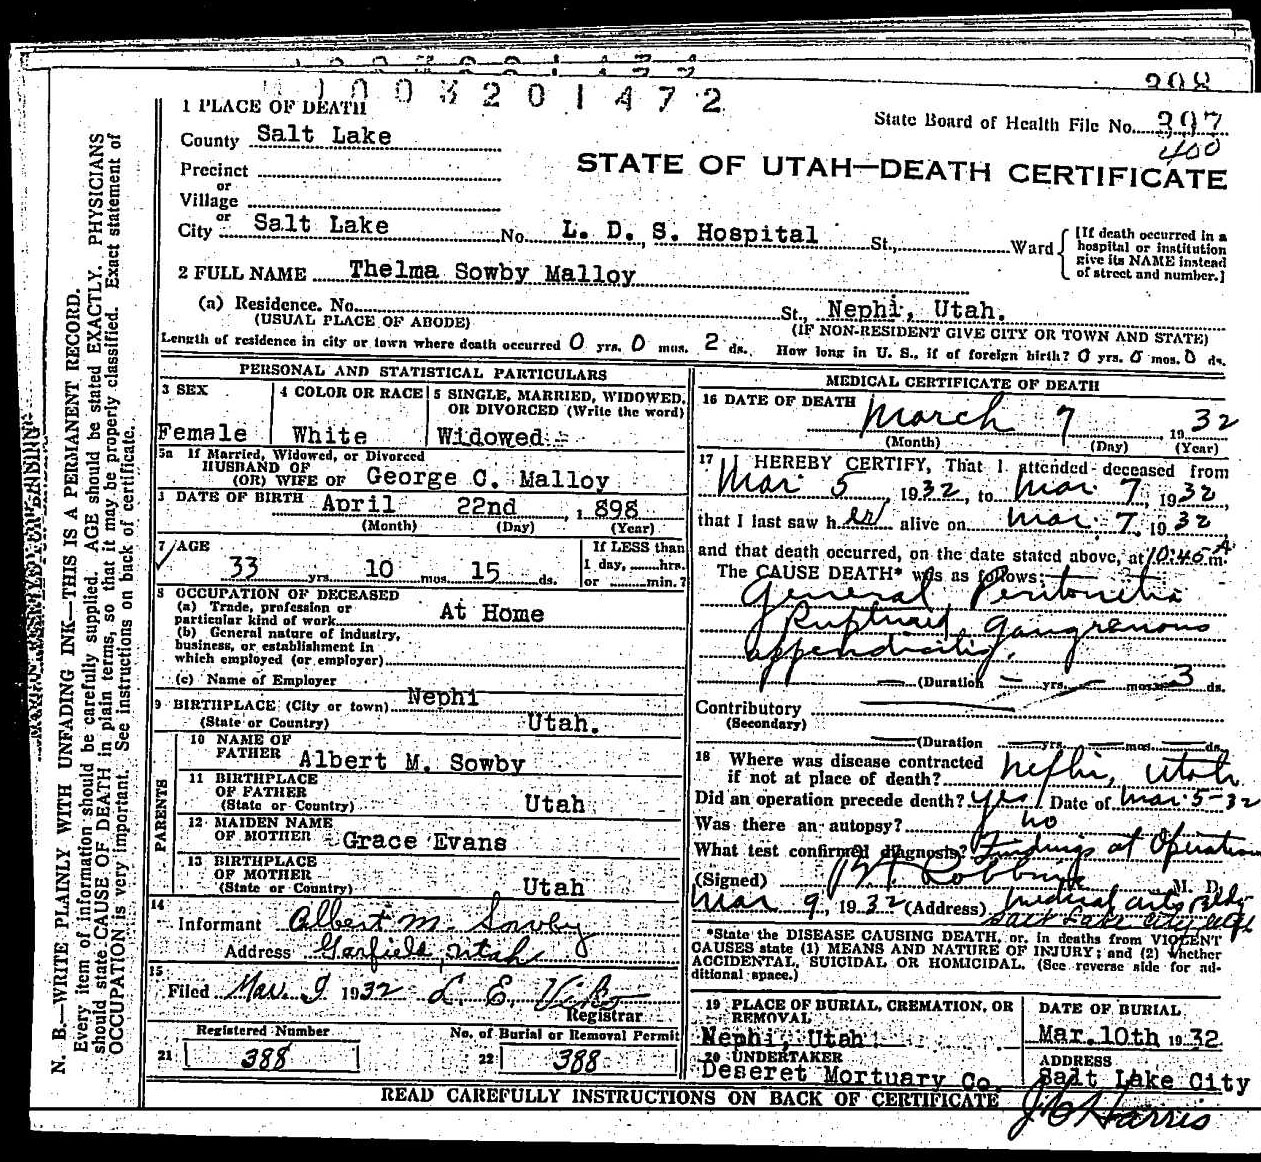 1003201472
398
1 PLACE OF DEATH
State Board of Health File No. 397
400
County Salt Lake
STATE OF UTAH—DEATH CERTIFICATE
Precinct
or
Village
or
City Salt Lake No. L. D. S. Hospital St., Ward
[If death occurred in a hospital or institution give its NAME instead of street and number.]
2 FULL NAME Thelma Sowby Malloy
(a) Residence. No. St., Nephi, Utah.
(USUAL PLACE OF ABODE) (IF NON-RESIDENT GIVE CITY OR TOWN AND STATE)
Length of residence in city or town where death occurred 0 yrs. 0 mos. 2 ds. How long in U. S., if of foreign birth? 0 yrs. 0 mos. 0 ds.
PERSONAL AND STATISTICAL PARTICULARS
3 SEX
Female
4 COLOR OR RACE
White
5 SINGLE, MARRIED, WIDOWED, OR DIVORCED (Write the word)
Widowed
5a If Married, Widowed, or Divorced
HUSBAND OF
(OR) WIFE OF George C. Malloy
DATE OF BIRTH April 22nd, 1898
(Month) (Day) (Year)
7 AGE
33 yrs. 10 mos. 15 ds.
If LESS than
1 day, hrs.
or min.?
8 OCCUPATION OF DECEASED
(a) Trade, profession or
particular kind of work At Home
(b) General nature of industry,
business, or establishment in
which employed (or employer)
(c) Name of Employer
9 BIRTHPLACE (City or town) Nephi
(State or Country) Utah.
PARENTS
10 NAME OF
FATHER Albert M. Sowby
11 BIRTHPLACE
OF FATHER
(State or Country) Utah
12 MAIDEN NAME
OF MOTHER Grace Evans
13 BIRTHPLACE
OF MOTHER
(State or Country) Utah
14
Informant Albert M. Sowby
Address Garfield, Utah
15
Filed Mar. 9 1932 L. E.
Registrar
Registered Number
21 388
No. of Burial or Removal Permit
22 388
MEDICAL CERTIFICATE OF DEATH
16 DATE OF DEATH March 7, 1932
(Month) (Day) (Year)
17 I HEREBY CERTIFY, That I attended deceased from
Mar 5, 1932, to Mar 7, 1932,
that I last saw her alive on Mar 7, 1932
and that death occurred, on the date stated above, at 10:45 A m.
The CAUSE DEATH* was as follows:
General Peritonitis
Ruptured, gangrenous
appendicitis,
(Duration yrs. mos. 3 ds.
Contributory
(Secondary)
(Duration yrs. mos. ds.
18 Where was disease contracted
if not at place of death? Nephi, Utah
Did an operation precede death? yes Date of Mar 5-32
Was there an autopsy? no
What test confirmed diagnosis? Findings at Operation
(Signed) Robbins M. D.
Mar 9, 1932 (Address) Medical Arts Bldg
Salt Lake City Utah
*State the DISEASE CAUSING DEATH, or, in deaths from VIOLENT
CAUSES state (1) MEANS AND NATURE OF INJURY; and (2) whether
ACCIDENTAL, SUICIDAL OR HOMICIDAL. (See reverse side for ad-
ditional space.)
19 PLACE OF BURIAL, CREMATION, OR
REMOVAL
Nephi, Utah
DATE OF BURIAL
Mar. 10th 1932
20 UNDERTAKER
Deseret Mortuary Co.
ADDRESS
Salt Lake City
READ CAREFULLY INSTRUCTIONS ON BACK OF CERTIFICATE
J C Harris
N. B.—WRITE PLAINLY WITH UNFADING INK—THIS IS A PERMANENT RECORD.
Every item of information should be carefully supplied. AGE should be stated EXACTLY. PHYSICIANS
should state CAUSE OF DEATH in plain terms, so that it may be properly classified. Exact statement of
OCCUPATION is very important. See instructions on back of certificate.